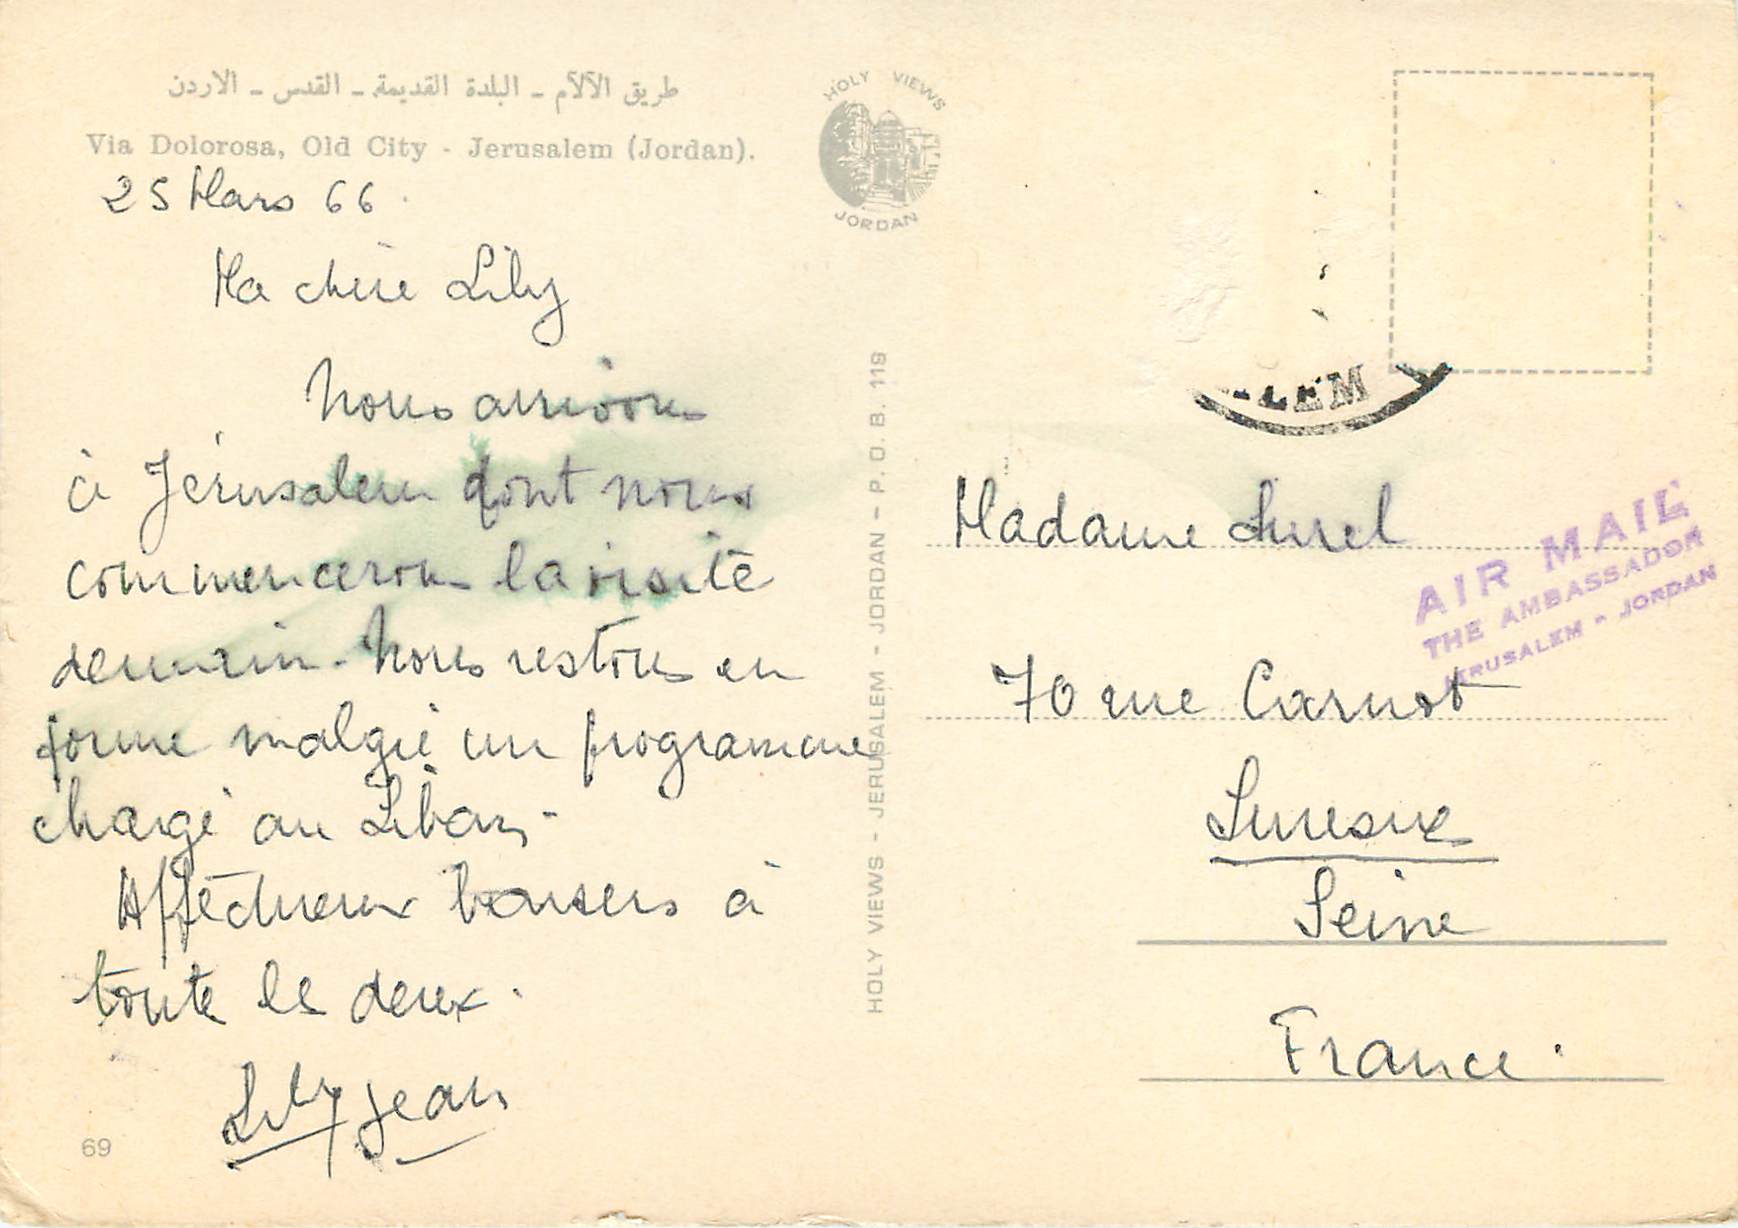 طريق الآلآم - البلدة القديمة - القدس - الاردن
Via Dolorosa, Old City - Jerusalem (Jordan).
HOLY VIEWS
JORDAN
25 Mars 66.
Ma chère Lily
Nous arrivons
à Jérusalem dont nous
commencerons la visite
demain. Nous restons en
forme malgré un programme
chargé au Liban.
Affectueux baisers à
toute les deux.
Lily Jean
69
HOLY VIEWS - JERUSALEM - JORDAN - P.O.B. 119
LEM
AIR MAIL
THE AMBASSADOR
JERUSALEM - JORDAN
Madame
70 rue Carnot
Suresnes
Seine
France.